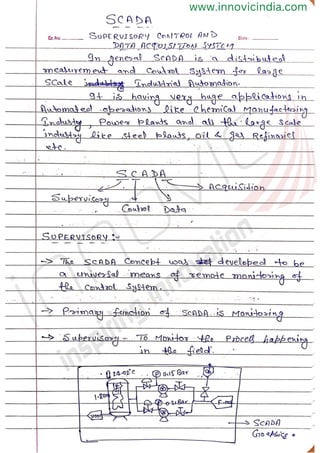 www.innovicindia.com
SCADA
SUPERVISORY CONTROL AND
DATA ACQUISITION SYSTEM
In general SCADA is a distributed
measurement and Control System for Large
Scale Industrial Automation.
It is having very huge applications in
Automated operations like Chemical Manufacturing
Industry, Power Plants and all the large Scale
industry like steel Plants, oil & gas Refinaries
etc.
SCADA
Acquisition
Supervisory
Control Data
SUPERVISORY :-
→ The SCADA Concept was developed to be
a universal means of remote monitoring of
the Control System.
→ Primary function of SCADA is Monitoring
→ Supervisory - To Monitor the Process happening
in the field.
0.15 Bar
→ SCADA
Graphics
Inspiring Innovation